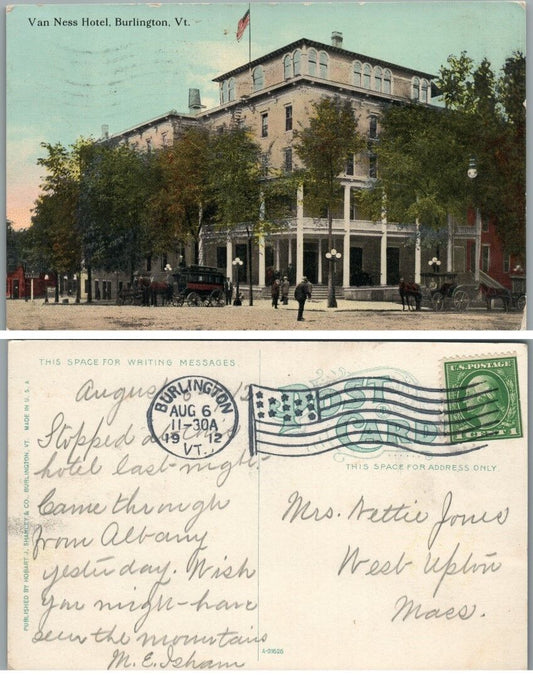 Van Ness Hotel, Burlington, Vt.
THIS SPACE FOR WRITING MESSAGES
August 6
BURLINGTON
AUG 6
11-30A
1912
VT.
POST
CARD
U.S. POSTAGE
THIS SPACE FOR ADDRESS ONLY
Stopped at this
hotel last night.
Came through
from Albany
yesterday. Wish
you might have
seen the mountains
M. E. Isham
Mrs. Nettie Jones
West Upton
Macs.
PUBLISHED BY HOBART J. SHANLEY & CO., BURLINGTON, VT. MADE IN U.S.A.